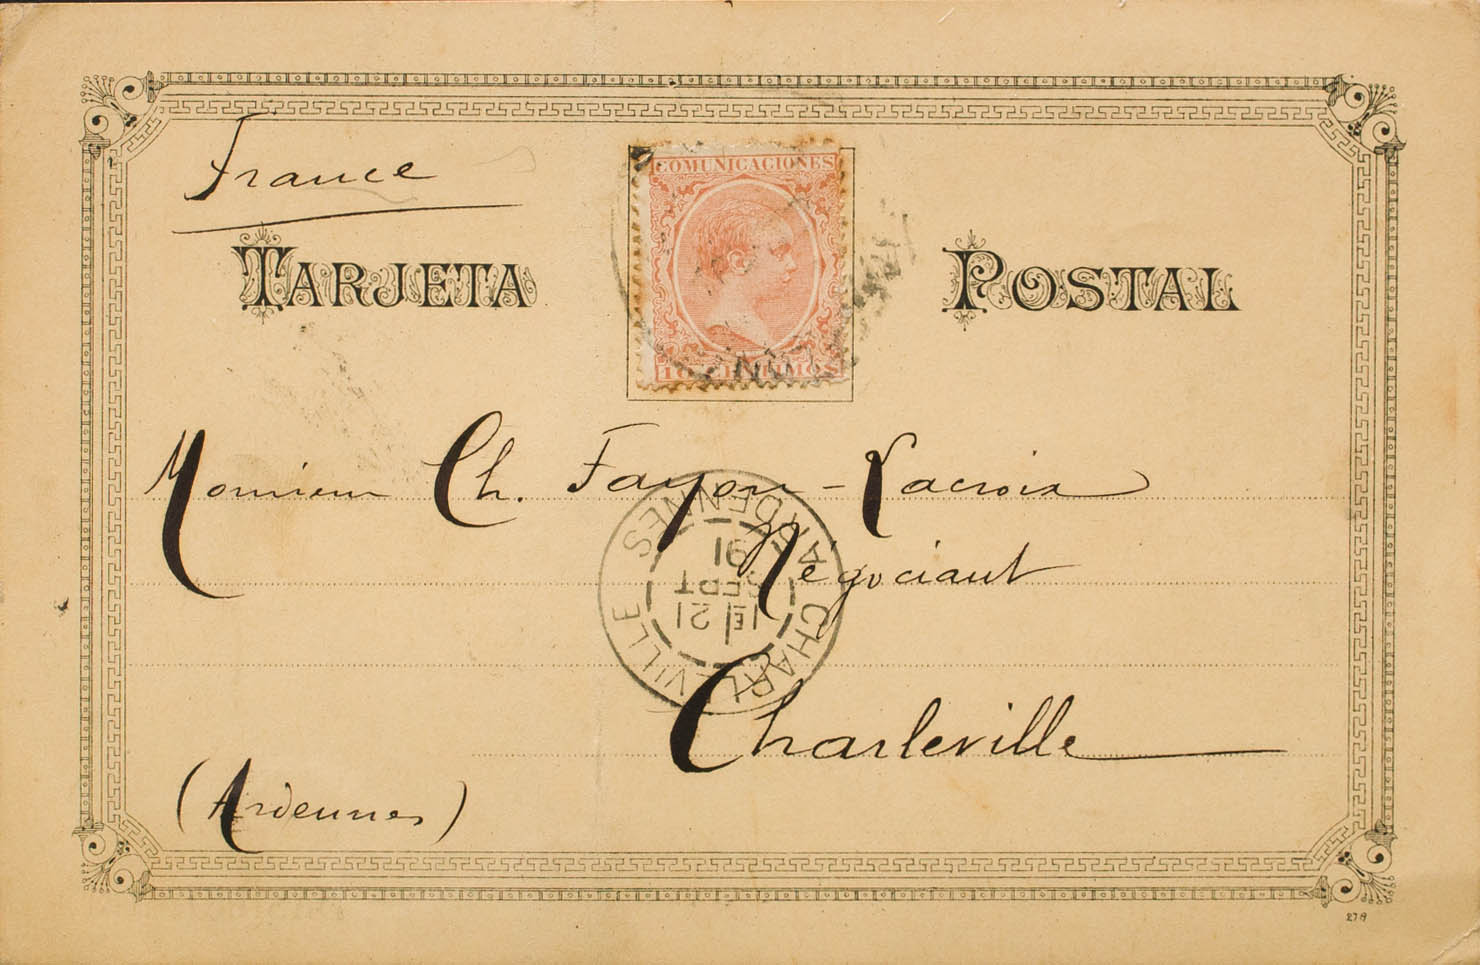 France
TARJETA POSTAL
COMUNICACIONES
10 CENTIMOS
Monsieur Ch. Fayon-Lacroix
Négociant
Charleville
(Ardennes)
CHARLEVILLE
ARDENNES
1E 21
SEPT
91